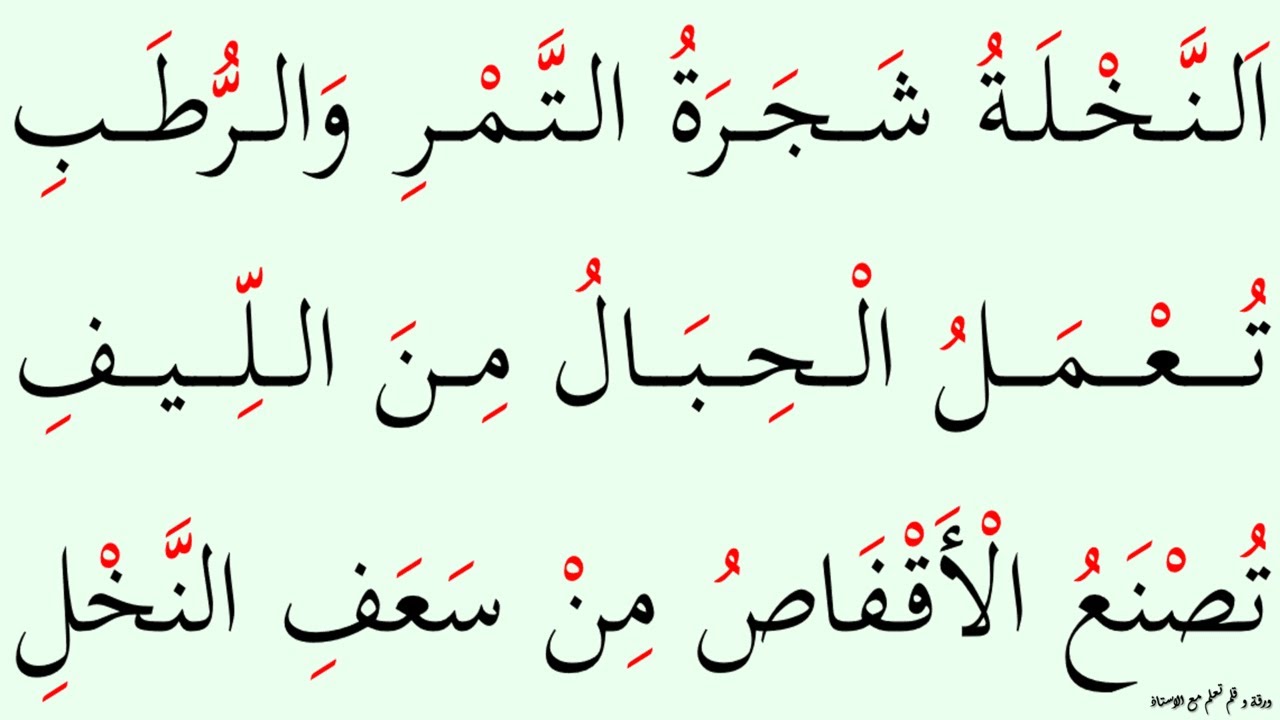 اَلنَّخْلَةُ شَجَرَةُ التَّمْرِ وَالرُّطَبِ
تُعْمَلُ الْحِبَالُ مِنَ اللِّيفِ
تُصْنَعُ الْأَقْفَاصُ مِنْ سَعَفِ النَّخْلِ
ورقة و قلم تعلم مع الاستاذ